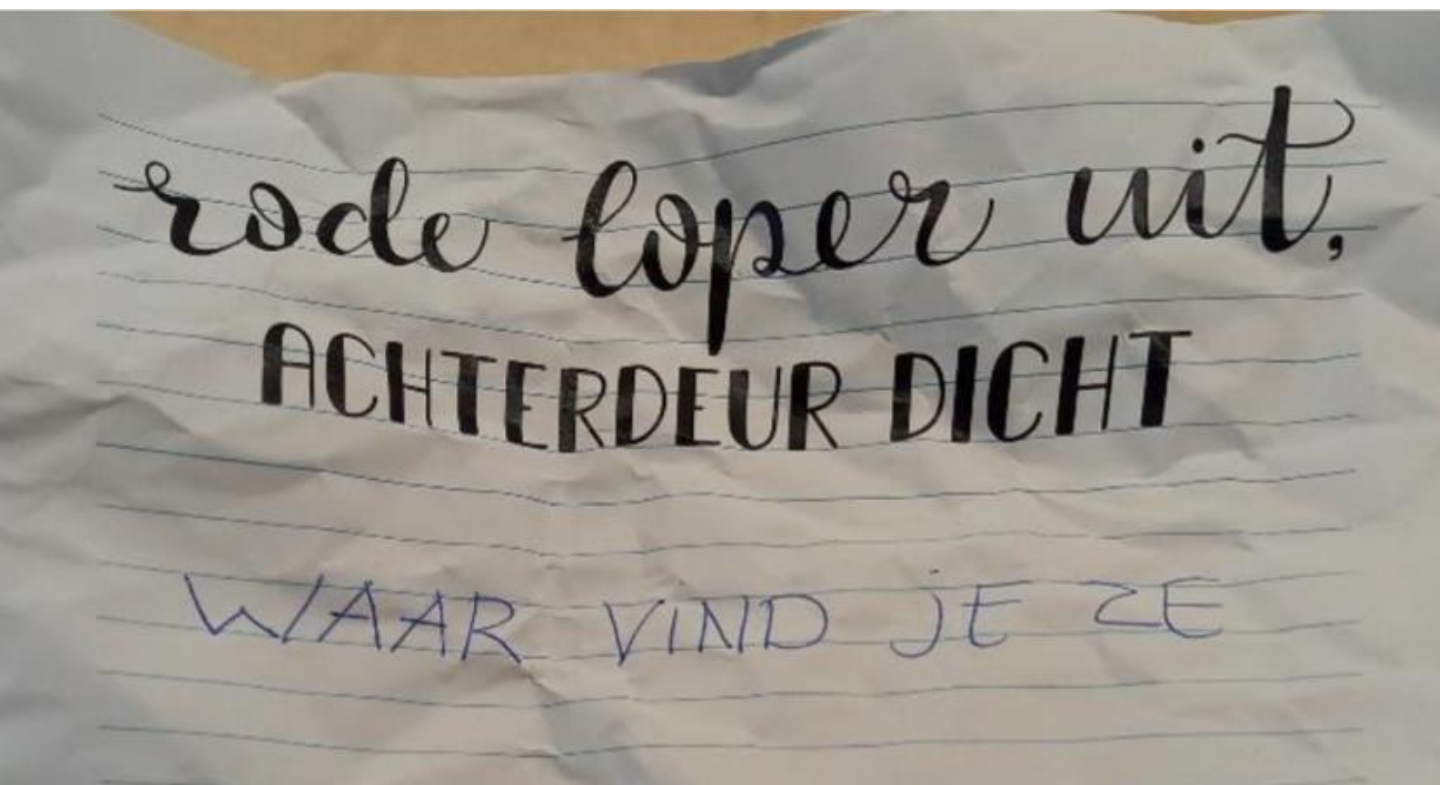 rode loper uit,
ACHTERDEUR DICHT
WAAR VIND JE ZE